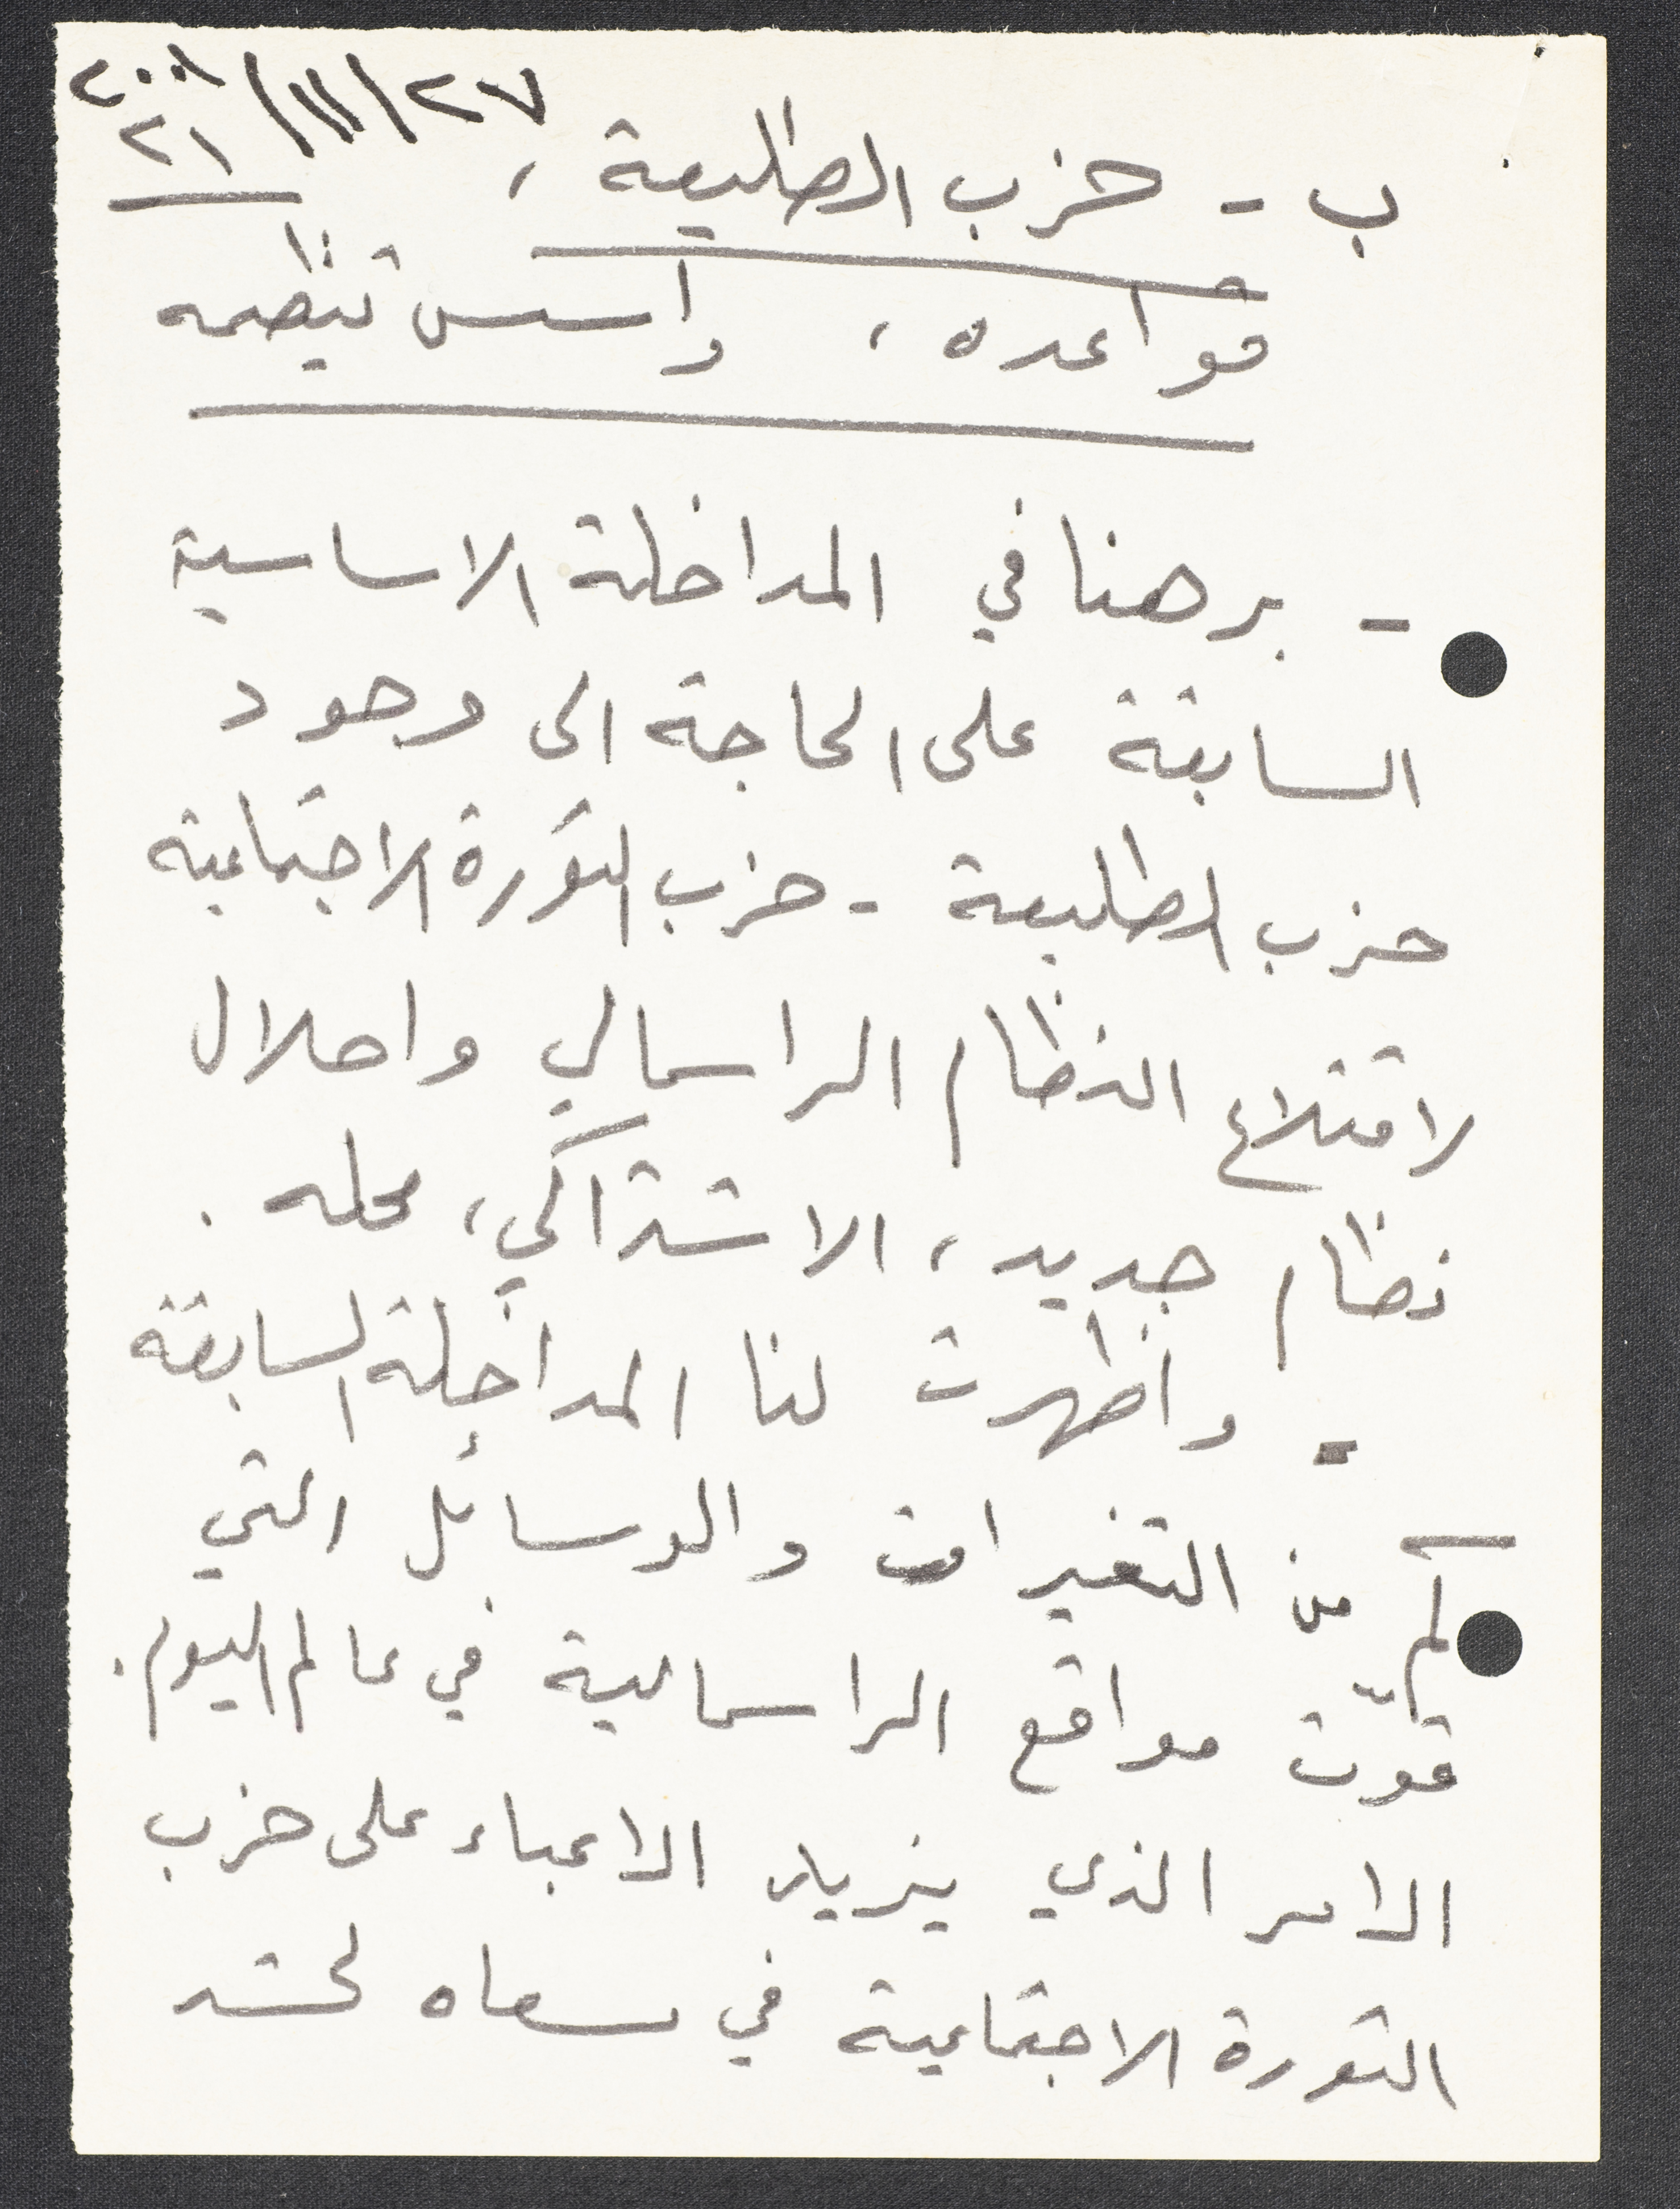 ٢٧/١١/٢٠٠١
٢١
ب - حزب الطليعة ،
قواعده ، واسس تنظيمه
- برهنا في المداخلة الاساسية
السابقة على الحاجة الى وجود
حزب الطليعة - حزب الثورة الاجتماعية
لاقتلاع النظام الراسمالي واحلال
نظام جديد ، الاشتراكي ، محله .
- واظهرت لنا المداخلة السابقة
كم من التغيرات والوسائل التي
قوّت مواقع الراسمالية في عالم اليوم .
الامر الذي يزيد الاعباء على حزب
الثورة الاجتماعية في سعاه لحشد